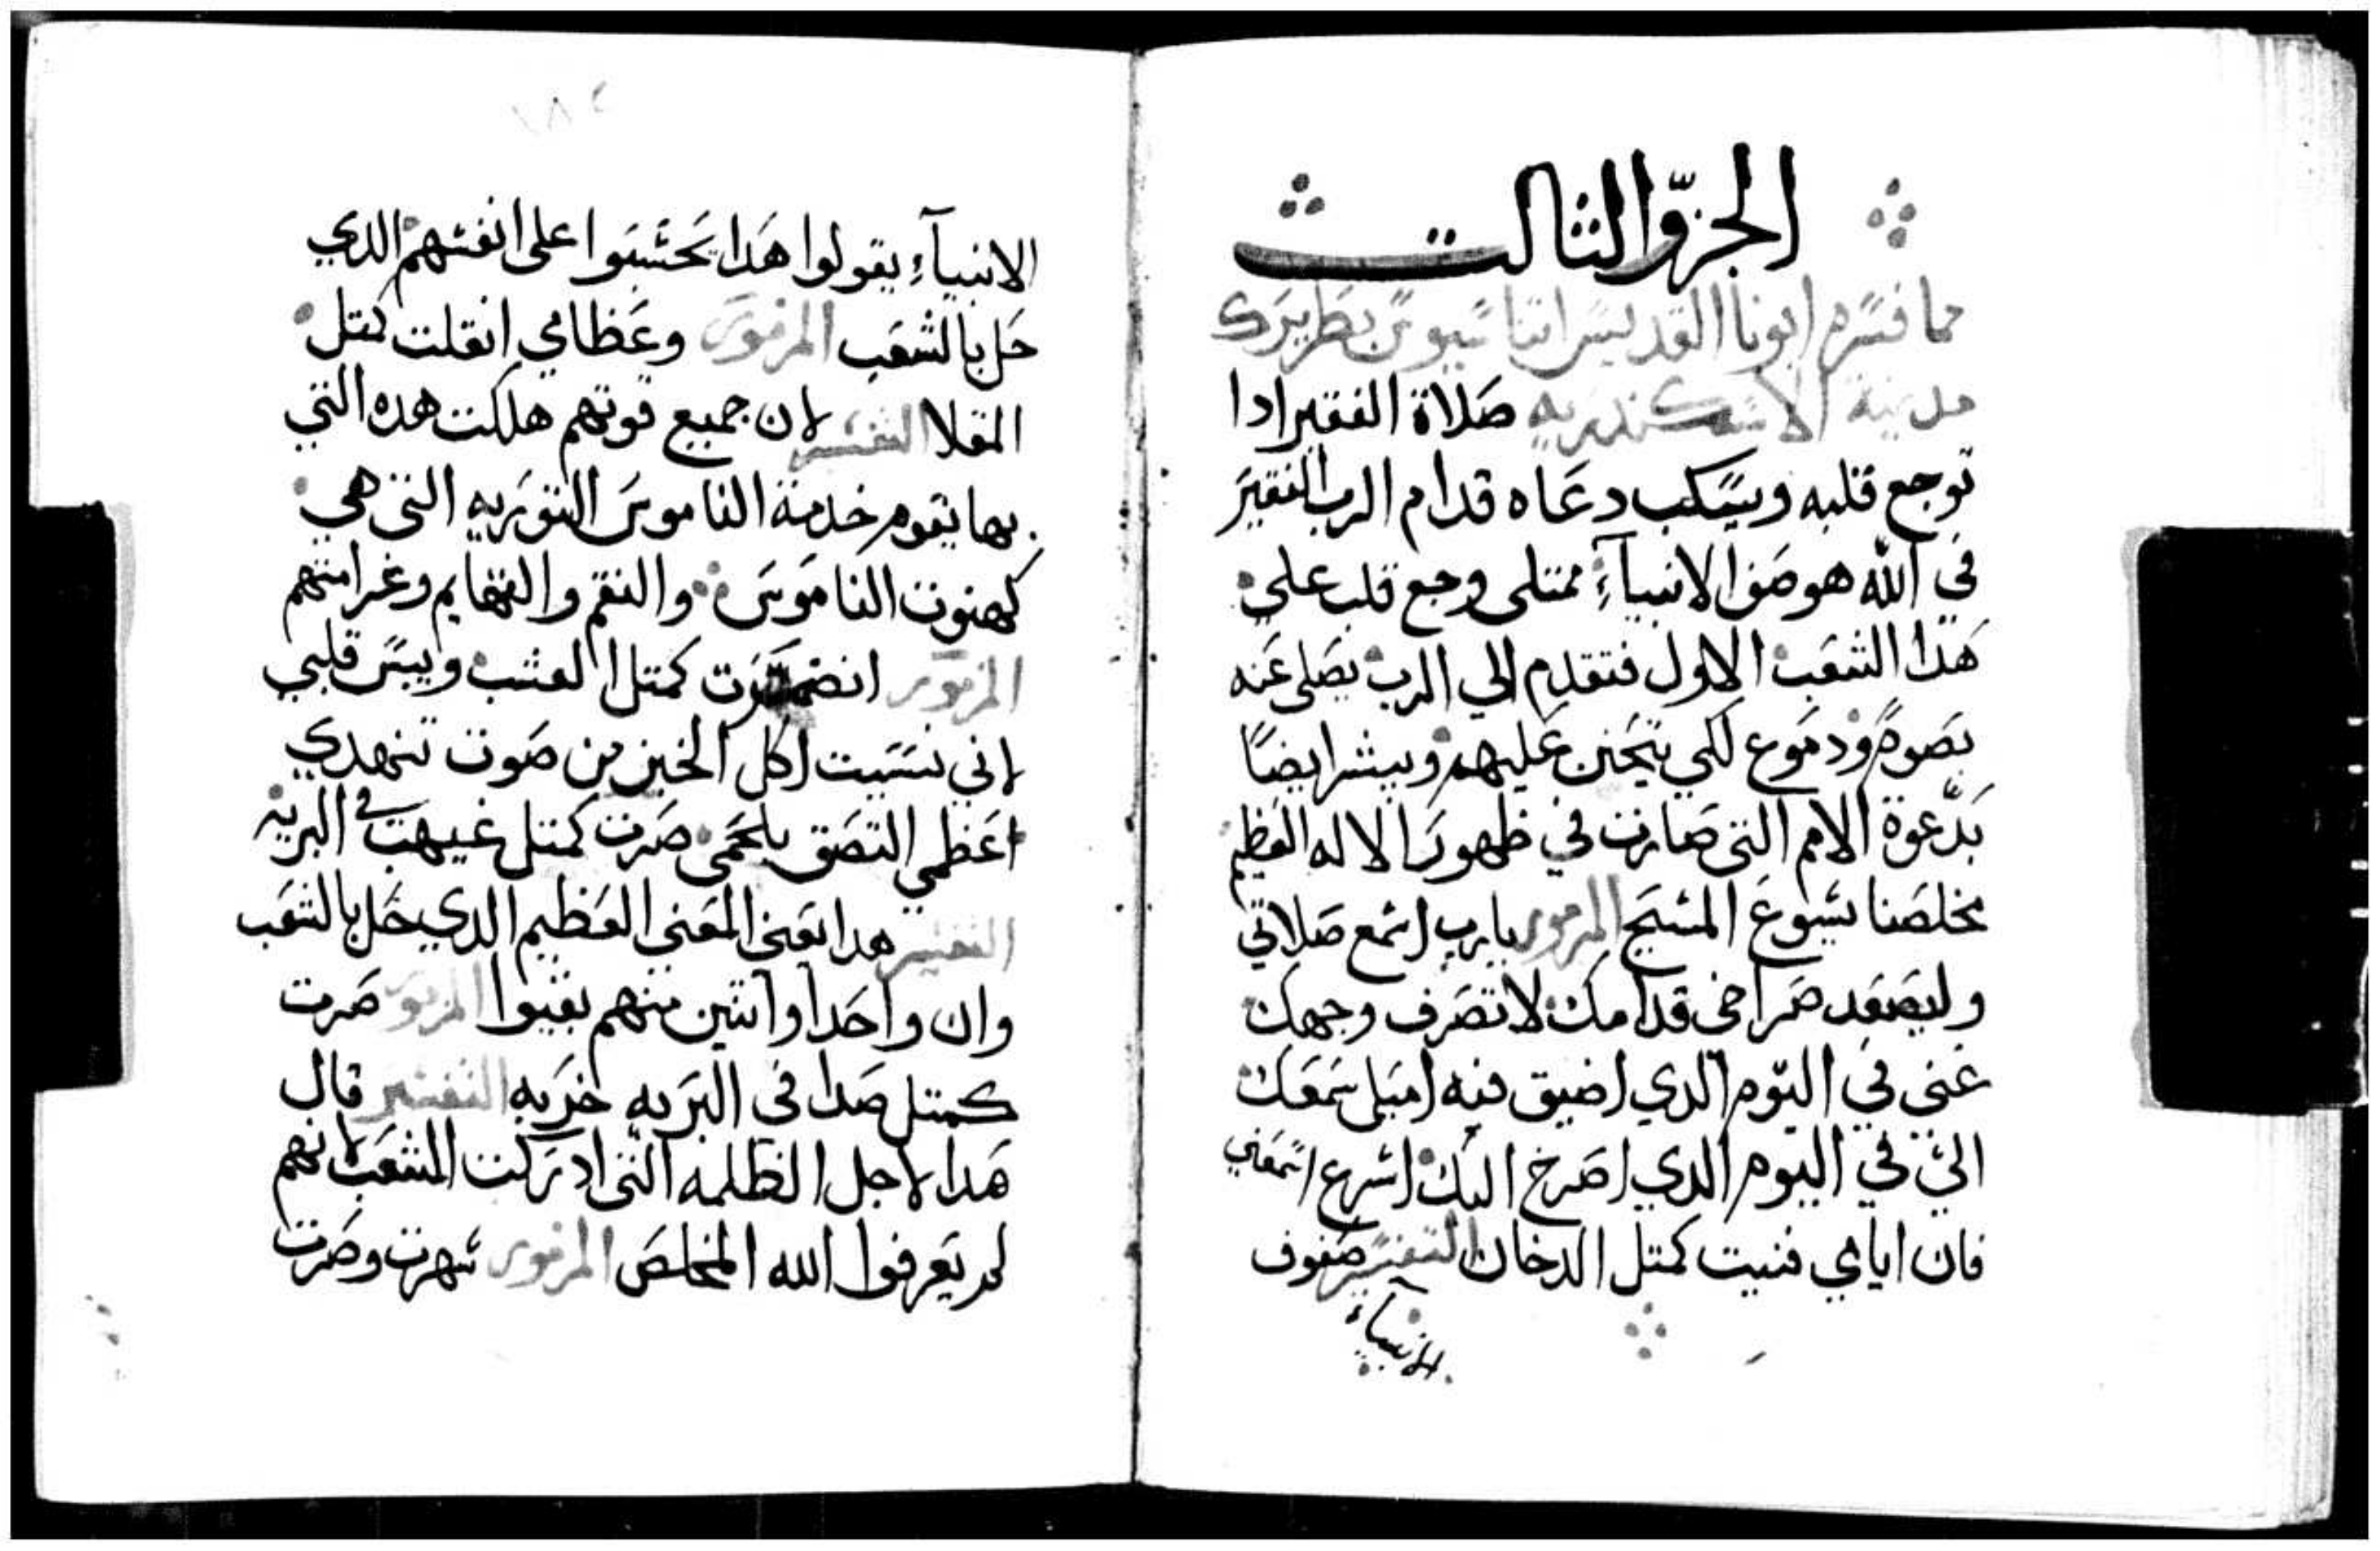 الجزو الثالت
مما فسره ابونا القديس انبا سيوس بطريرك
مدينة الاسكندريه صلاة الفقير ادا
توجع قلبه ويسكب دعاه قدام الرب الفقير
في الله هو صف الانبيآء ممتلى وجع قلب على
هدا الشعب الاول فتقدم الي الرب يصلى عنه
بصوم ودموع لكي يتحنن عليهم ويبشر ايضًا
بدعوة الامم التى صارت في ظهور الاله العظيم
مخلصنا يسوع المسيح المزمور يا رب اسمع صلاتي
وليصعد صراخى قدامك لا تصرف وجهك
عني في اليوم الدي اضيق فيه اميل سمعك
الىّ في اليوم الدي اصرخ اليك اسرع اسمعني
فان ايامي فنيت كمتل الدخان التفسير صفوف
الانبياء
١٨٤
الانبيآء يقولوا هدا يحسبوا على انفسهم الدي
حل بالشعب المزمور وعظامي انقلت كمتل
المقلا التفسير لان جميع قوتهم هلكت هده التي
بها يقوم خدمة الناموس التوريه التى هي
كهنوت الناموس والنقم والبهايم وغرامتهم
المزمور انضمرت كمتل العشب ويبس قلبي
لاني نسيت اكل الخبز من صوت تنهدي
اعظمي التصق بلحمى صرت كمتل غيهب في البريه
التفسير هدا يعنى المعنى العظيم الدي حل بالشعب
وان واحدا او اتنين منهم بقيوا المزمور صرت
كمتل صدا فى البريه خربه التفسير قال
هدا لاجل الظلمه التى ادركت الشعب لانهم
لم يعرفوا الله المخلص المزمور سهرت وصرت